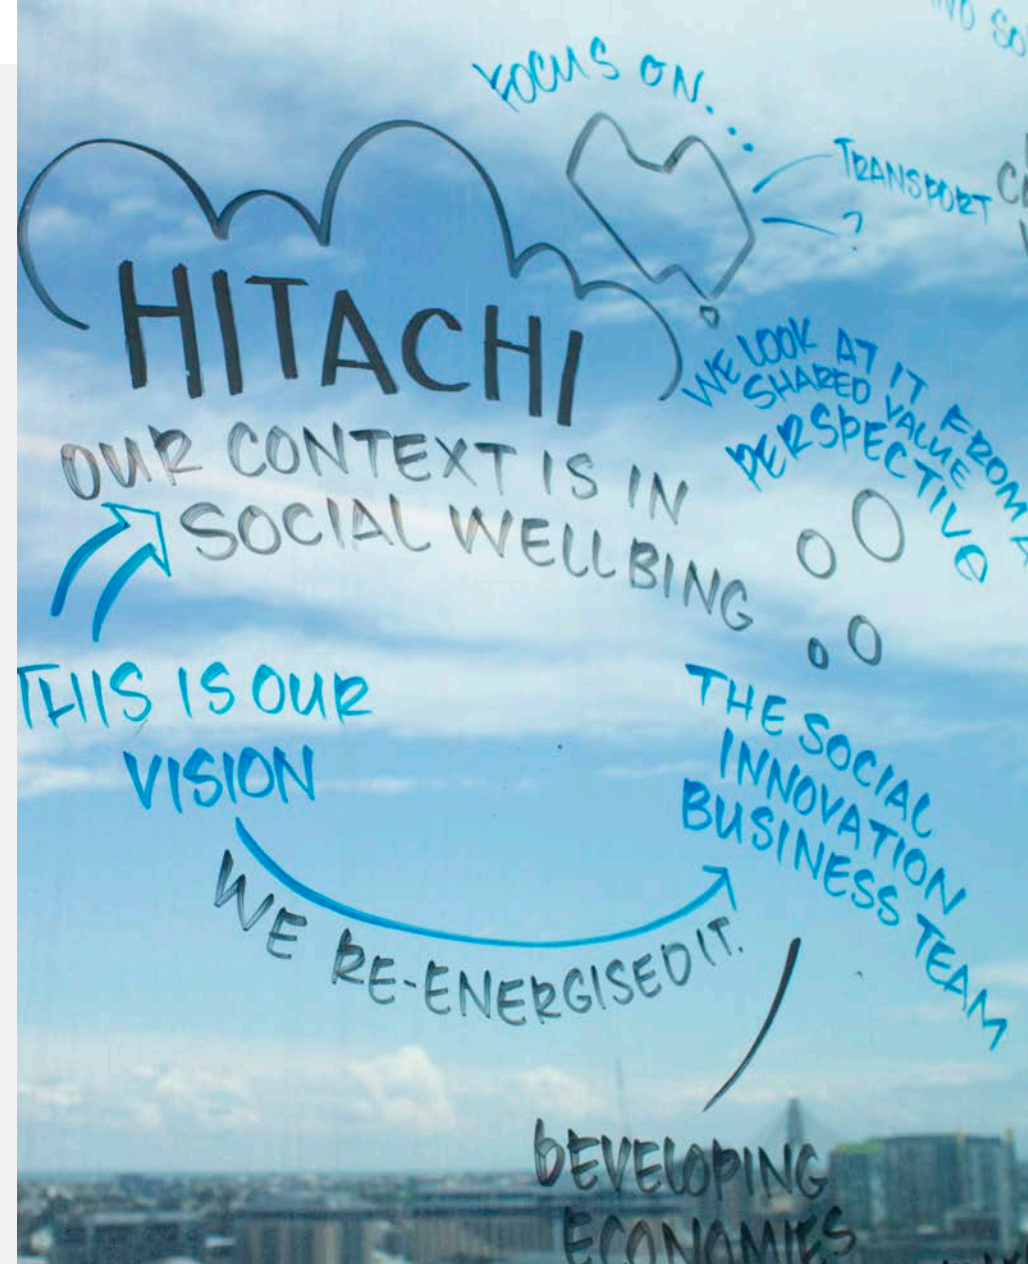 FOCUS ON...
TRANSPORT
?
HITACHI
WE LOOK AT IT FROM A
SHARED VALUE
PERSPECTIVE
OUR CONTEXT IS IN
SOCIAL WELLBING
THIS IS OUR
VISION
THE SOCIAL
INNOVATION
BUSINESS TEAM
WE RE-ENERGISED IT.
DEVELOPING
ECONOMIES